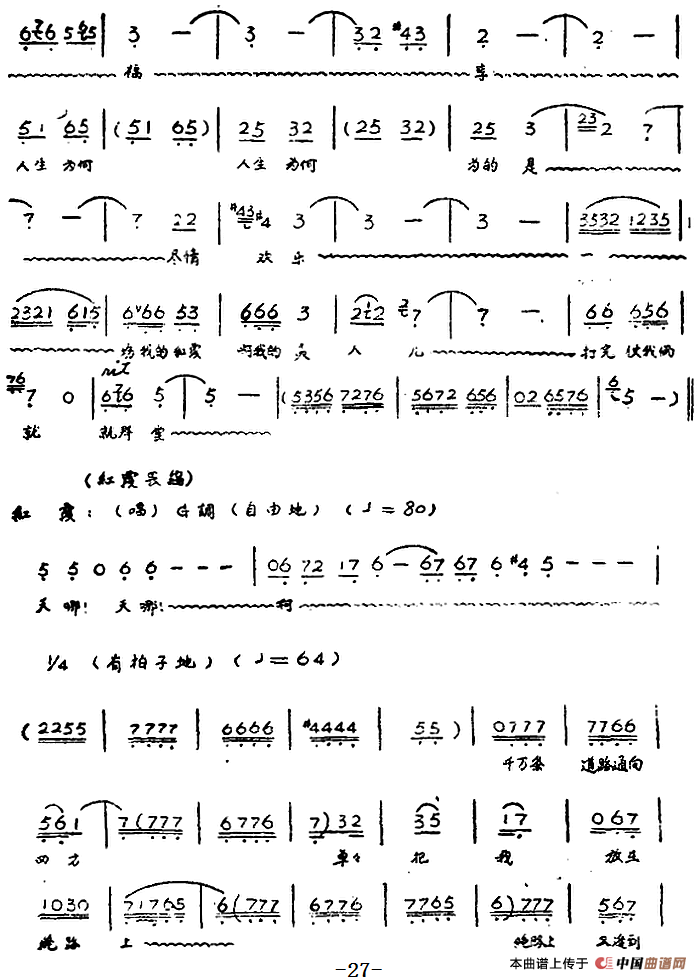 6 7 6 5 6 5 | 3 — | 3 — | 32 #43 | 2 — | 2 — |
福 享
51 65 | (51 65) | 25 32 | (25 32) | 25 3 | 23 2 7 |
人生为何 人生为何 为的是
7 — | 7 22 | #43 #4 3 | 3 — | 3 — | 3532 1235 |
尽情 欢乐
2321 615 | 6 66 53 | 666 3 | 212 7 | 7 — | 66 656 |
我的红霞 我的灵人儿 打完仗我俩
76 7 0 | 676 5 | 5 — | (5356 7276 | 5672 656 | 02 6576 | 6 5 —) ||
rit
就 就拜堂
(红霞丢鞋)
红霞：(唱) G调 (自由地) (♩=80)
5 5 0 6 6 — — — | 06 72 17 6 — 67 67 6 #4 5 — — — |
天哪! 天哪! 啊
1/4 (有拍子地) (♩=64)
(2255 | 7777 | 6666 | #4444 | 55) | 0777 | 7766 |
千万条 道路通向
561 | 7(777 | 6776 | 7)32 | 35 | 17 | 067 |
四方 单单把我 放在
1030 | 71765 | 6(777 | 6776 | 7765 | 6)777 | 567 |
绝路上 绝路上 又逢到
本曲谱上传于 中国曲谱网
-27-